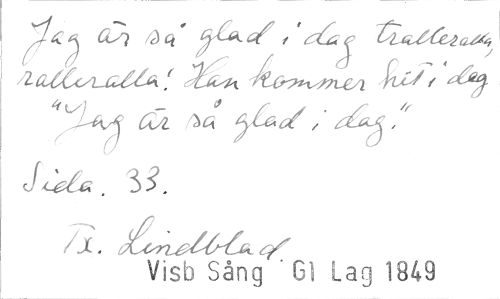 Jag är så glad i dag tralleralla,
ralleralla! Han kommer hit i dag
"Jag är så glad i dag."
Sida. 33.
Tx. Lindblad.
Visb Sång Gl Lag 1849